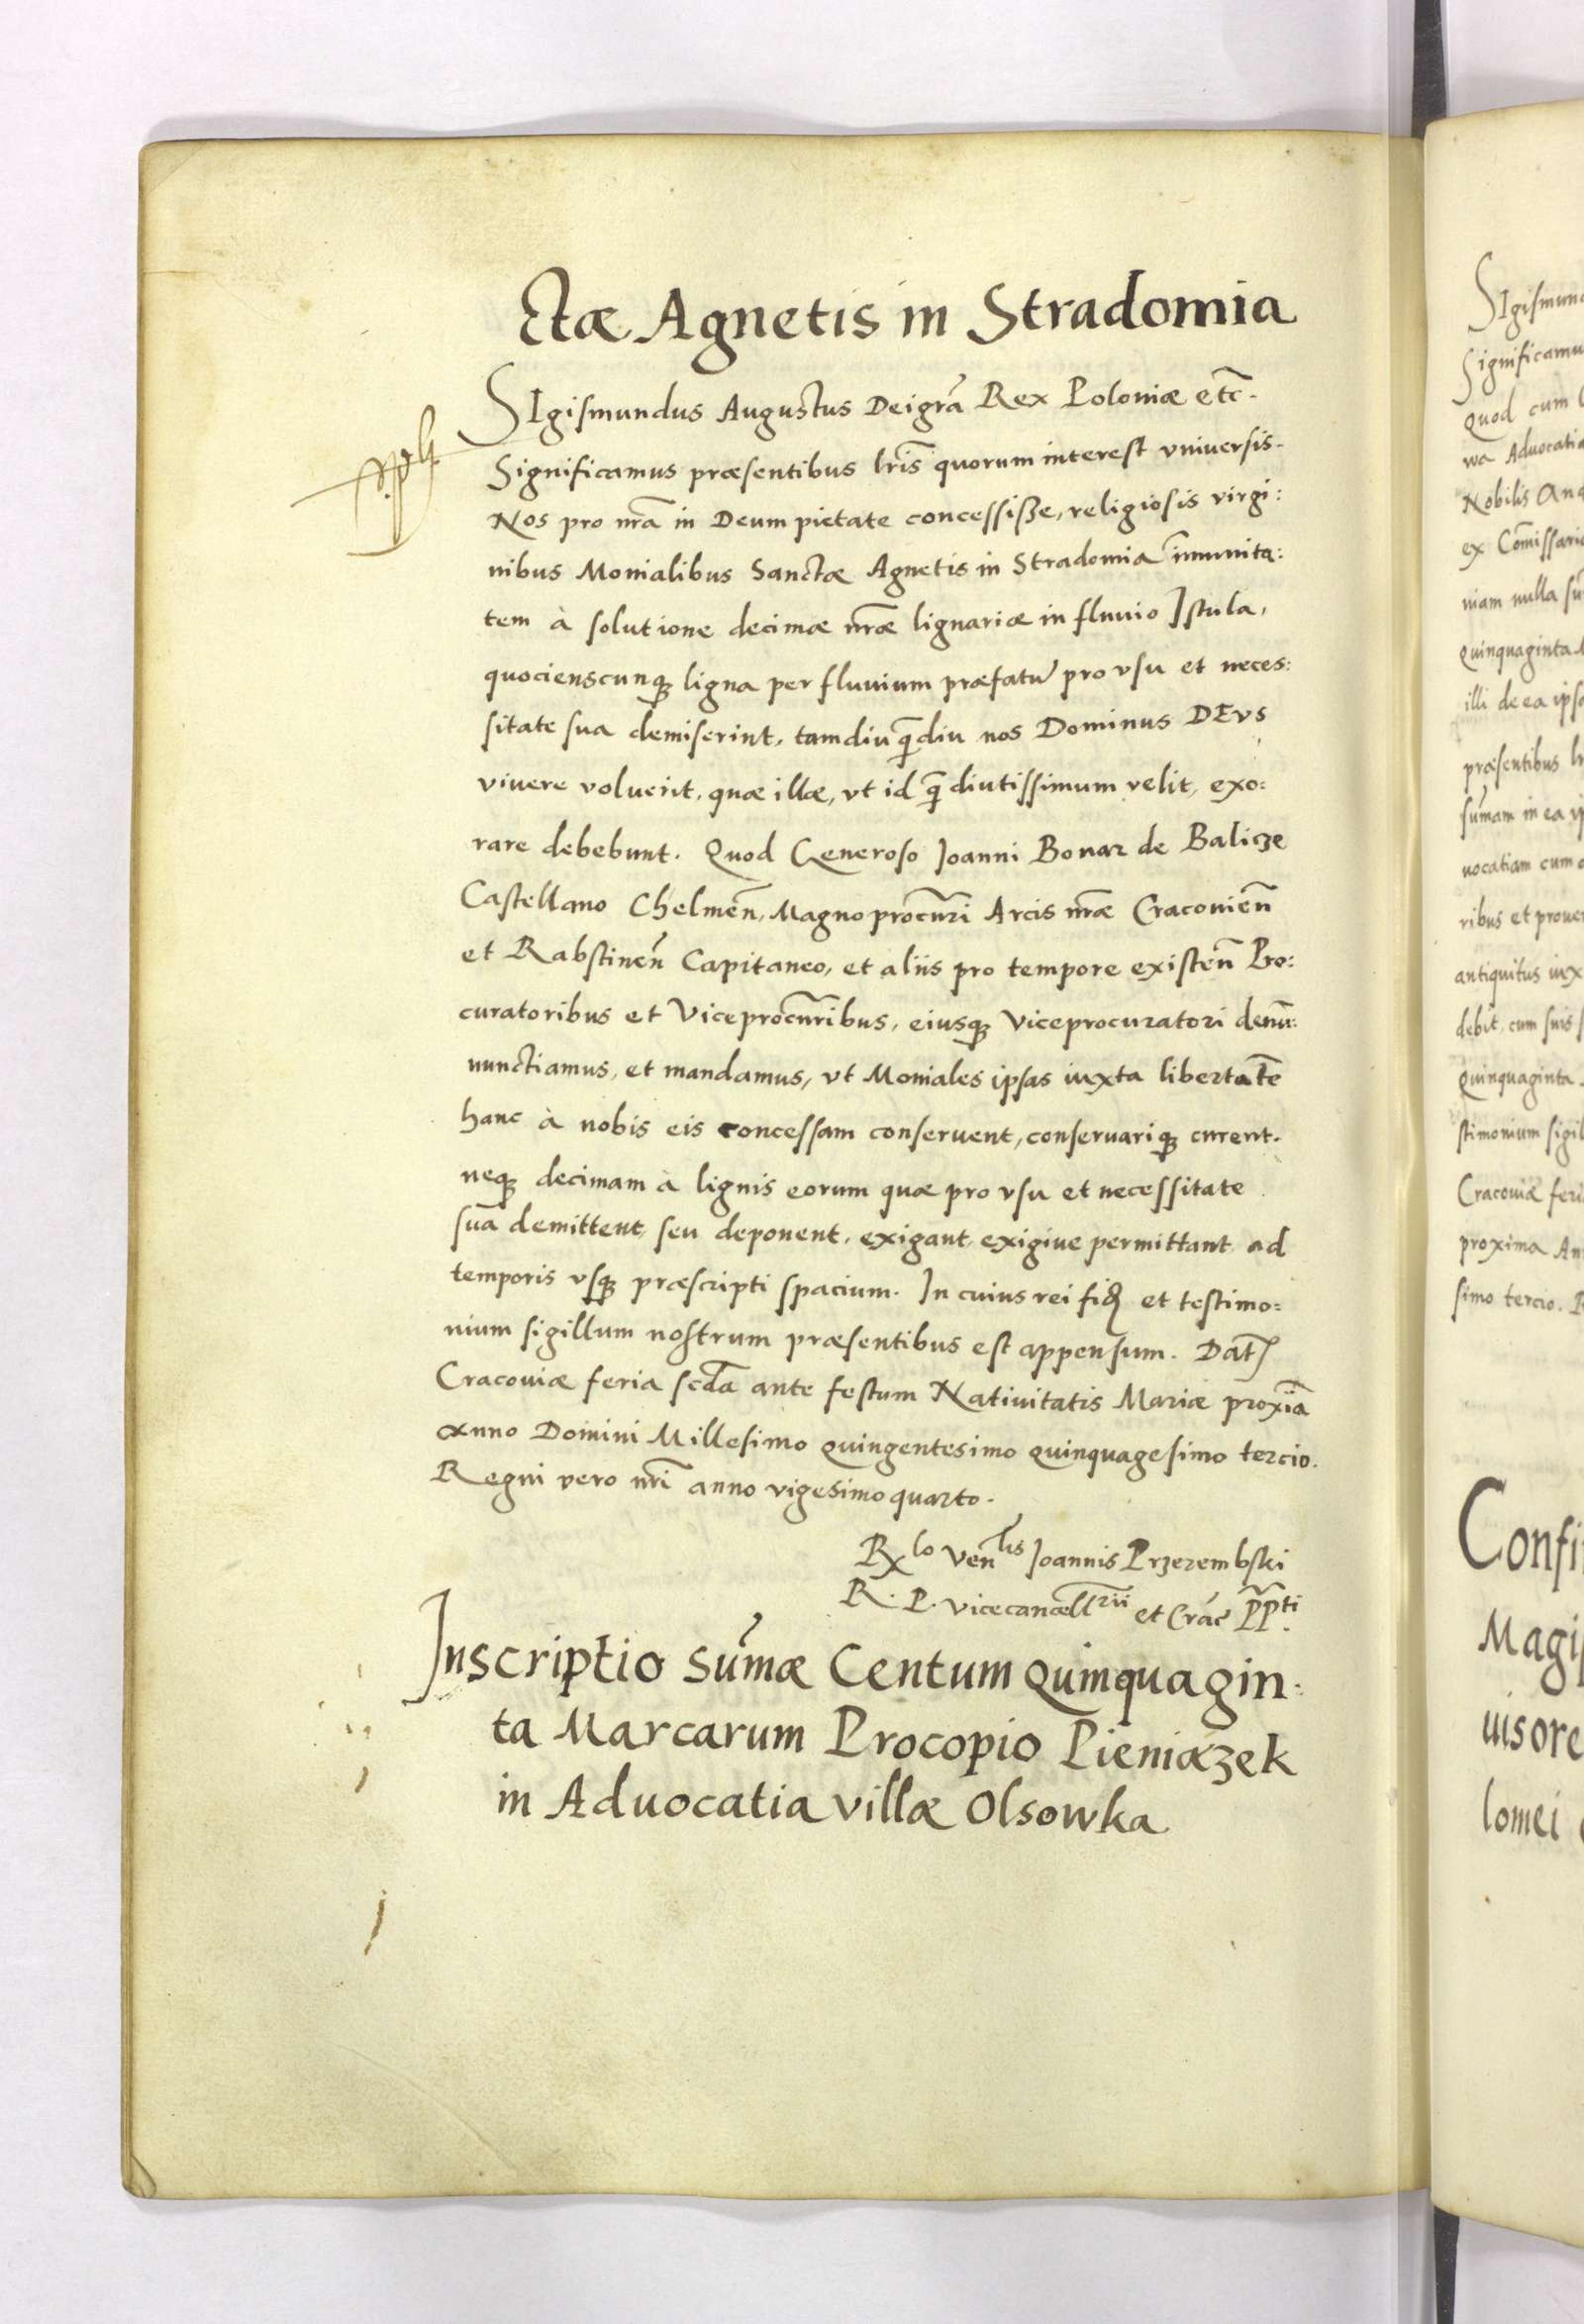 ctæ Agnetis in Stradomia
SIgismundus Augustus Dei grã Rex Poloniæ etc̃.
Significamus præsentibus lr̃is quorum interest vniuersis.
Nos pro nr̃a in Deum pietate concessisse, religiosis virgi:
nibus Monialibus Sanctæ Agnetis in Stradomia im̃unita:
tem à solutione decimæ nr̃æ lignariæ in fluuio Istula,
quocienscunqꝫ ligna per fluuium præfatũ pro vsu et neces:
sitate sua demiserint, tamdiu q̃diu nos Dominus DEVS
viuere voluerit, quæ illæ, vt id q̃ diutissimum velit, exo:
rare debebunt. Quod Generoso Ioanni Bonar de Balicze
Castellano Chelmeñ, Magnoprocur̃i Arcis nr̃æ Cracouieñ
et Rabstineñ Capitaneo, et aliis pro tempore existeñ Pro:
curatoribus et Viceprocur̃ibus, eiusqꝫ Viceprocuratori denũ:
nunctiamus, et mandamus, vt Moniales ipsas iuxta libertatẽ
hanc à nobis eis concessam conseruent, conseruariqꝫ curent.
neqꝫ decimam à lignis eorum quæ pro vsu et necessitate
sua demittent, seu deponent, exigant, exigiue permittant ad
temporis vsqꝫ præscripti spacium. In cuius rei fidꝫ et testimo:
nium sigillum nostrum præsentibus est appensum. Dat̃
Cracouiæ feria scđa ante festum Natiuitatis Mariæ proxĩa
Anno Domini Millesimo quingentesimo quinquagesimo tercio.
Regni vero nr̃i anno vigesimoquarto.
Rx̃ lo Ven lis Ioannis Przerembski
R. P. vicecancell rii et Crac̃ PP ti.
Inscriptio sum̃æ Centum Quinquagin:
ta Marcarum Procopio Pieniazek
in Aduocatia villæ Olsowka
SIgismun
Significamu
Quod cum l
wa Aduocatia
Nobilis An
ex Com̃issari
niam nulla
Quinquaginta
illi de ea ips
præsentibus lr
sum̃am in ea ip
uocatiam cum
ribus et proue
antiquitus iux
debit, cum suis
Quinquaginta
stimonium sigil
Cracouiæ feri
proxima An
simo tercio. R
Confi
Magi
uisore
lomei